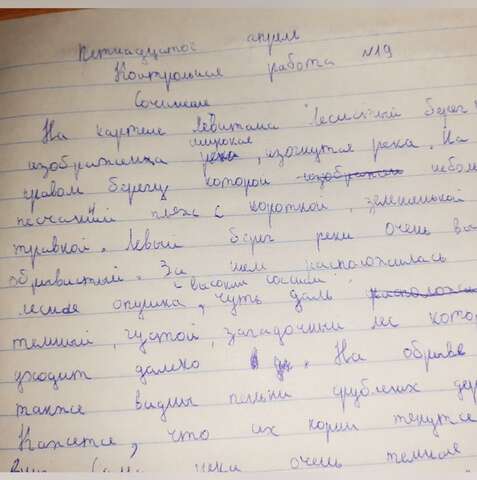 Пятнадцатое апреля
Контрольная работа №19
Сочинение
На картине Левитана Лесистый берег
изображенна широкая река, изогнутся река. На
правом берегу которой изображен небол
песчаный пляж с короткой, зелененькой
травкой. Левый берег реки очень вы
обрывистый. За ним расположилась
лесная опушка, с высоким соснами чуть даль расположи
темный, густой, загадочный лес кото
уходит далеко На обрыве
также видны пеньки срубленых дер
Кажется, что их корни тянутся
реки очень темная